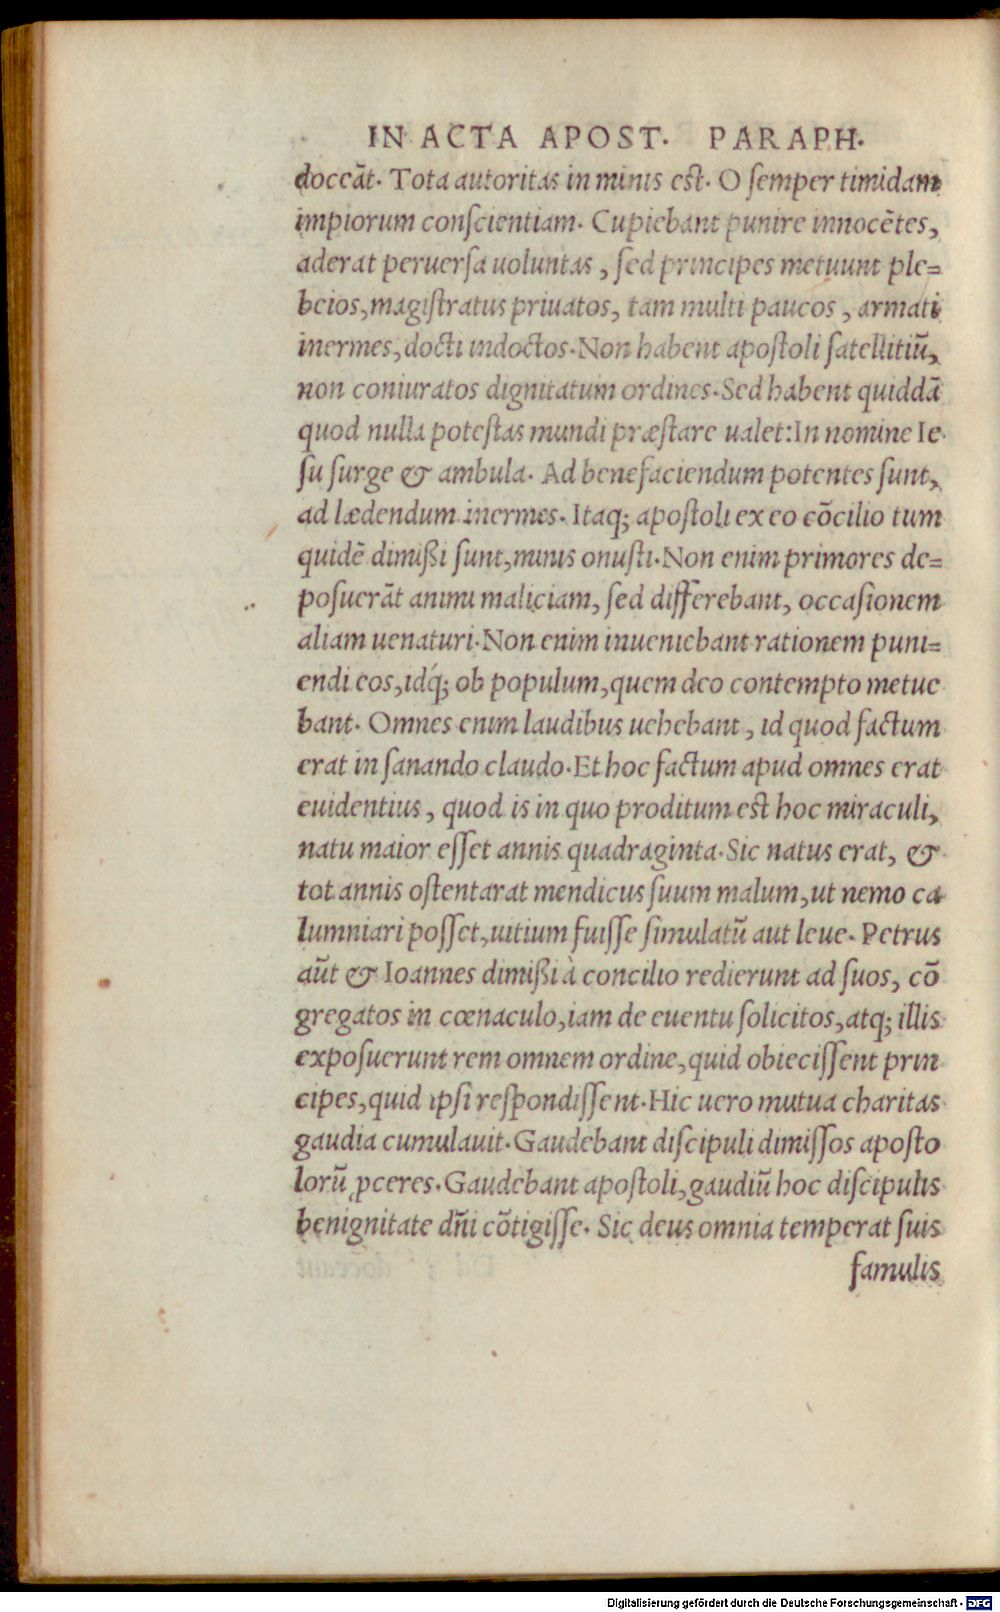 IN ACTA APOST. PARAPH.
doceāt. Tota autoritas in minis est. O semper timidam
impiorum conscientiam. Cupiebant punire innocētes,
aderat peruersa uoluntas, sed principes metuunt ple=
beios, magistratus priuatos, tam multi paucos, armati
inermes, docti indoctos. Non habent apostoli satellitiū,
non coniuratos dignitatum ordines. Sed habent quiddā
quod nulla potestas mundi præstare ualet: In nomine Ie
su surge & ambula. Ad benefaciendum potentes sunt,
ad lædendum inermes. Itaq; apostoli ex eo cōcilio tum
quidē dimißi sunt, minis onusti. Non enim primores de=
posuerāt animi maliciam, sed differebant, occasionem
aliam uenaturi. Non enim inueniebant rationem puni=
endi eos, idq́; ob populum, quem deo contempto metue
bant. Omnes enim laudibus uehebant, id quod factum
erat in sanando claudo. Et hoc factum apud omnes erat
euidentius, quod is in quo proditum est hoc miraculi,
natu maior esset annis quadraginta. Sic natus erat, &
tot annis ostentarat mendicus suum malum, ut nemo ca
lumniari posset, uitium fuisse simulatū aut leue. Petrus
aūt & Ioannes dimißi à concilio redierunt ad suos, cō
gregatos in cœnaculo, iam de euentu solicitos, atq; illis
exposuerunt rem omnem ordine, quid obiecissent prin
cipes, quid ipsi respondissent. Hic uero mutua charitas
gaudia cumulauit. Gaudebant discipuli dimissos aposto
lorū ꝓceres. Gaudebant apostoli, gaudiū hoc discipulis
benignitate dn̄i cōtigisse. Sic deus omnia temperat suis
famulis
Digitalisierung gefördert durch die Deutsche Forschungsgemeinschaft - DFG